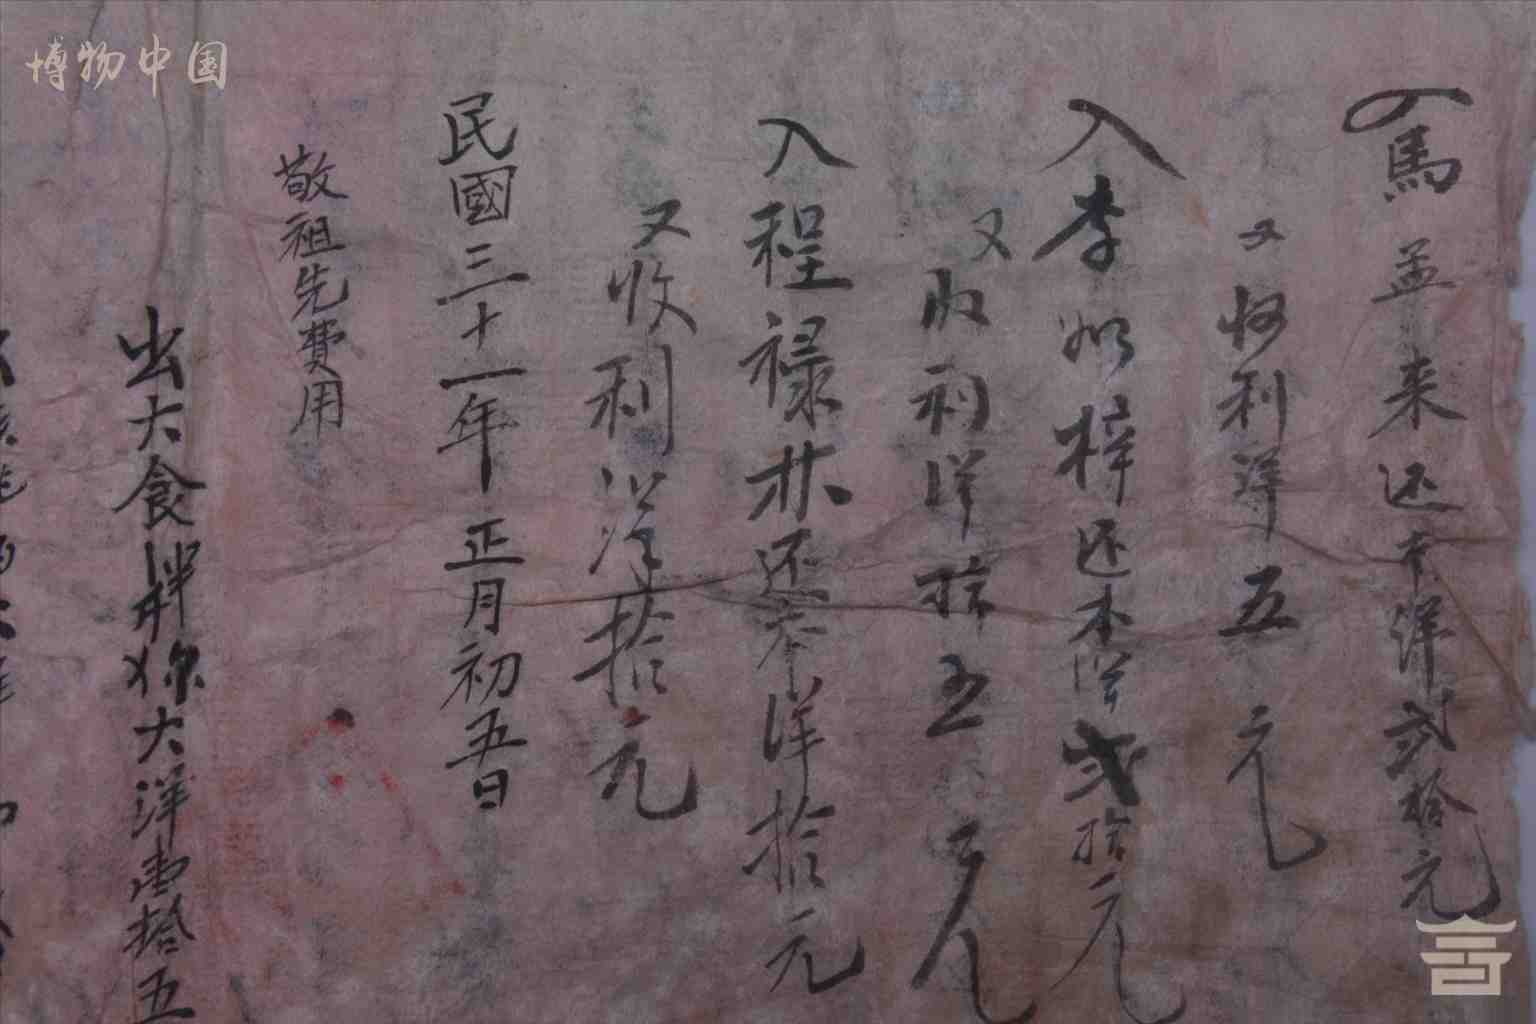 博物中国
入馬孟来还本洋弍拾元
又收利洋五元
入李如梓还本洋弍拾元
又收利洋拾五元
入程禄林还本洋拾元
又收利洋拾元
民國三十一年正月初五日
敬祖先費用
出大食拌你大洋壹拾五